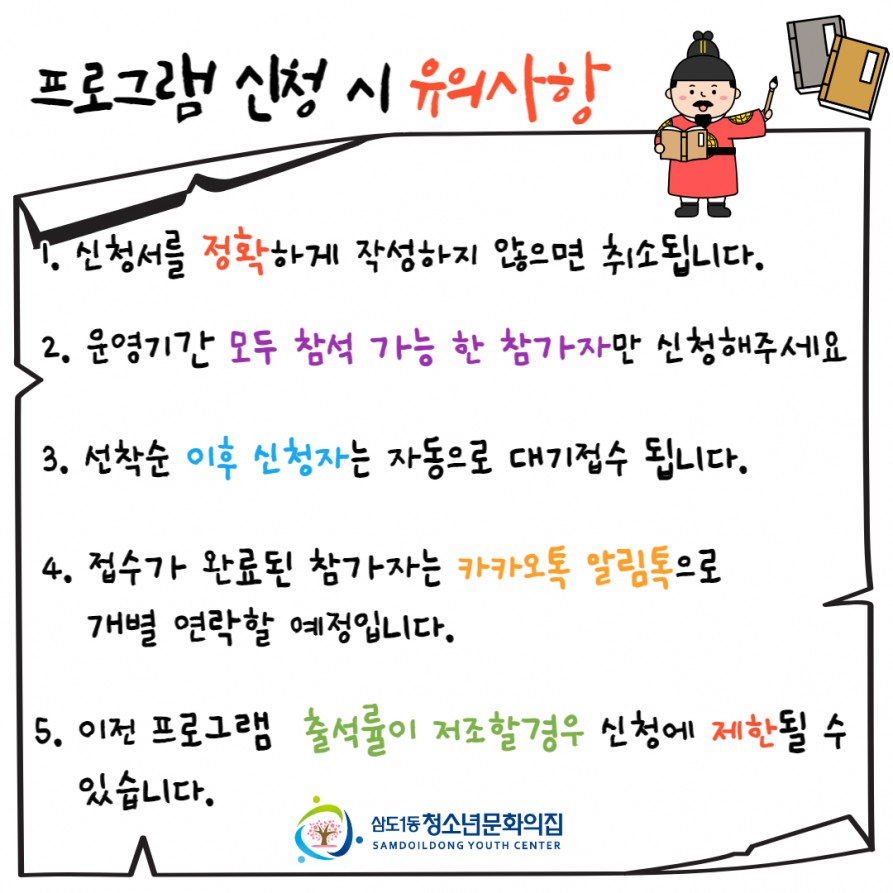 프로그램 신청 시 유의사항
1. 신청서를 정확하게 작성하지 않으면 취소됩니다.
2. 운영기간 모두 참석 가능 한 참가자만 신청해주세요
3. 선착순 이후 신청자는 자동으로 대기접수 됩니다.
4. 접수가 완료된 참가자는 카카오톡 알림톡으로
개별 연락할 예정입니다.
5. 이전 프로그램 출석률이 저조할경우 신청에 제한될 수
있습니다.
삼도1동청소년문화의집
SAMDOILDONG YOUTH CENTER